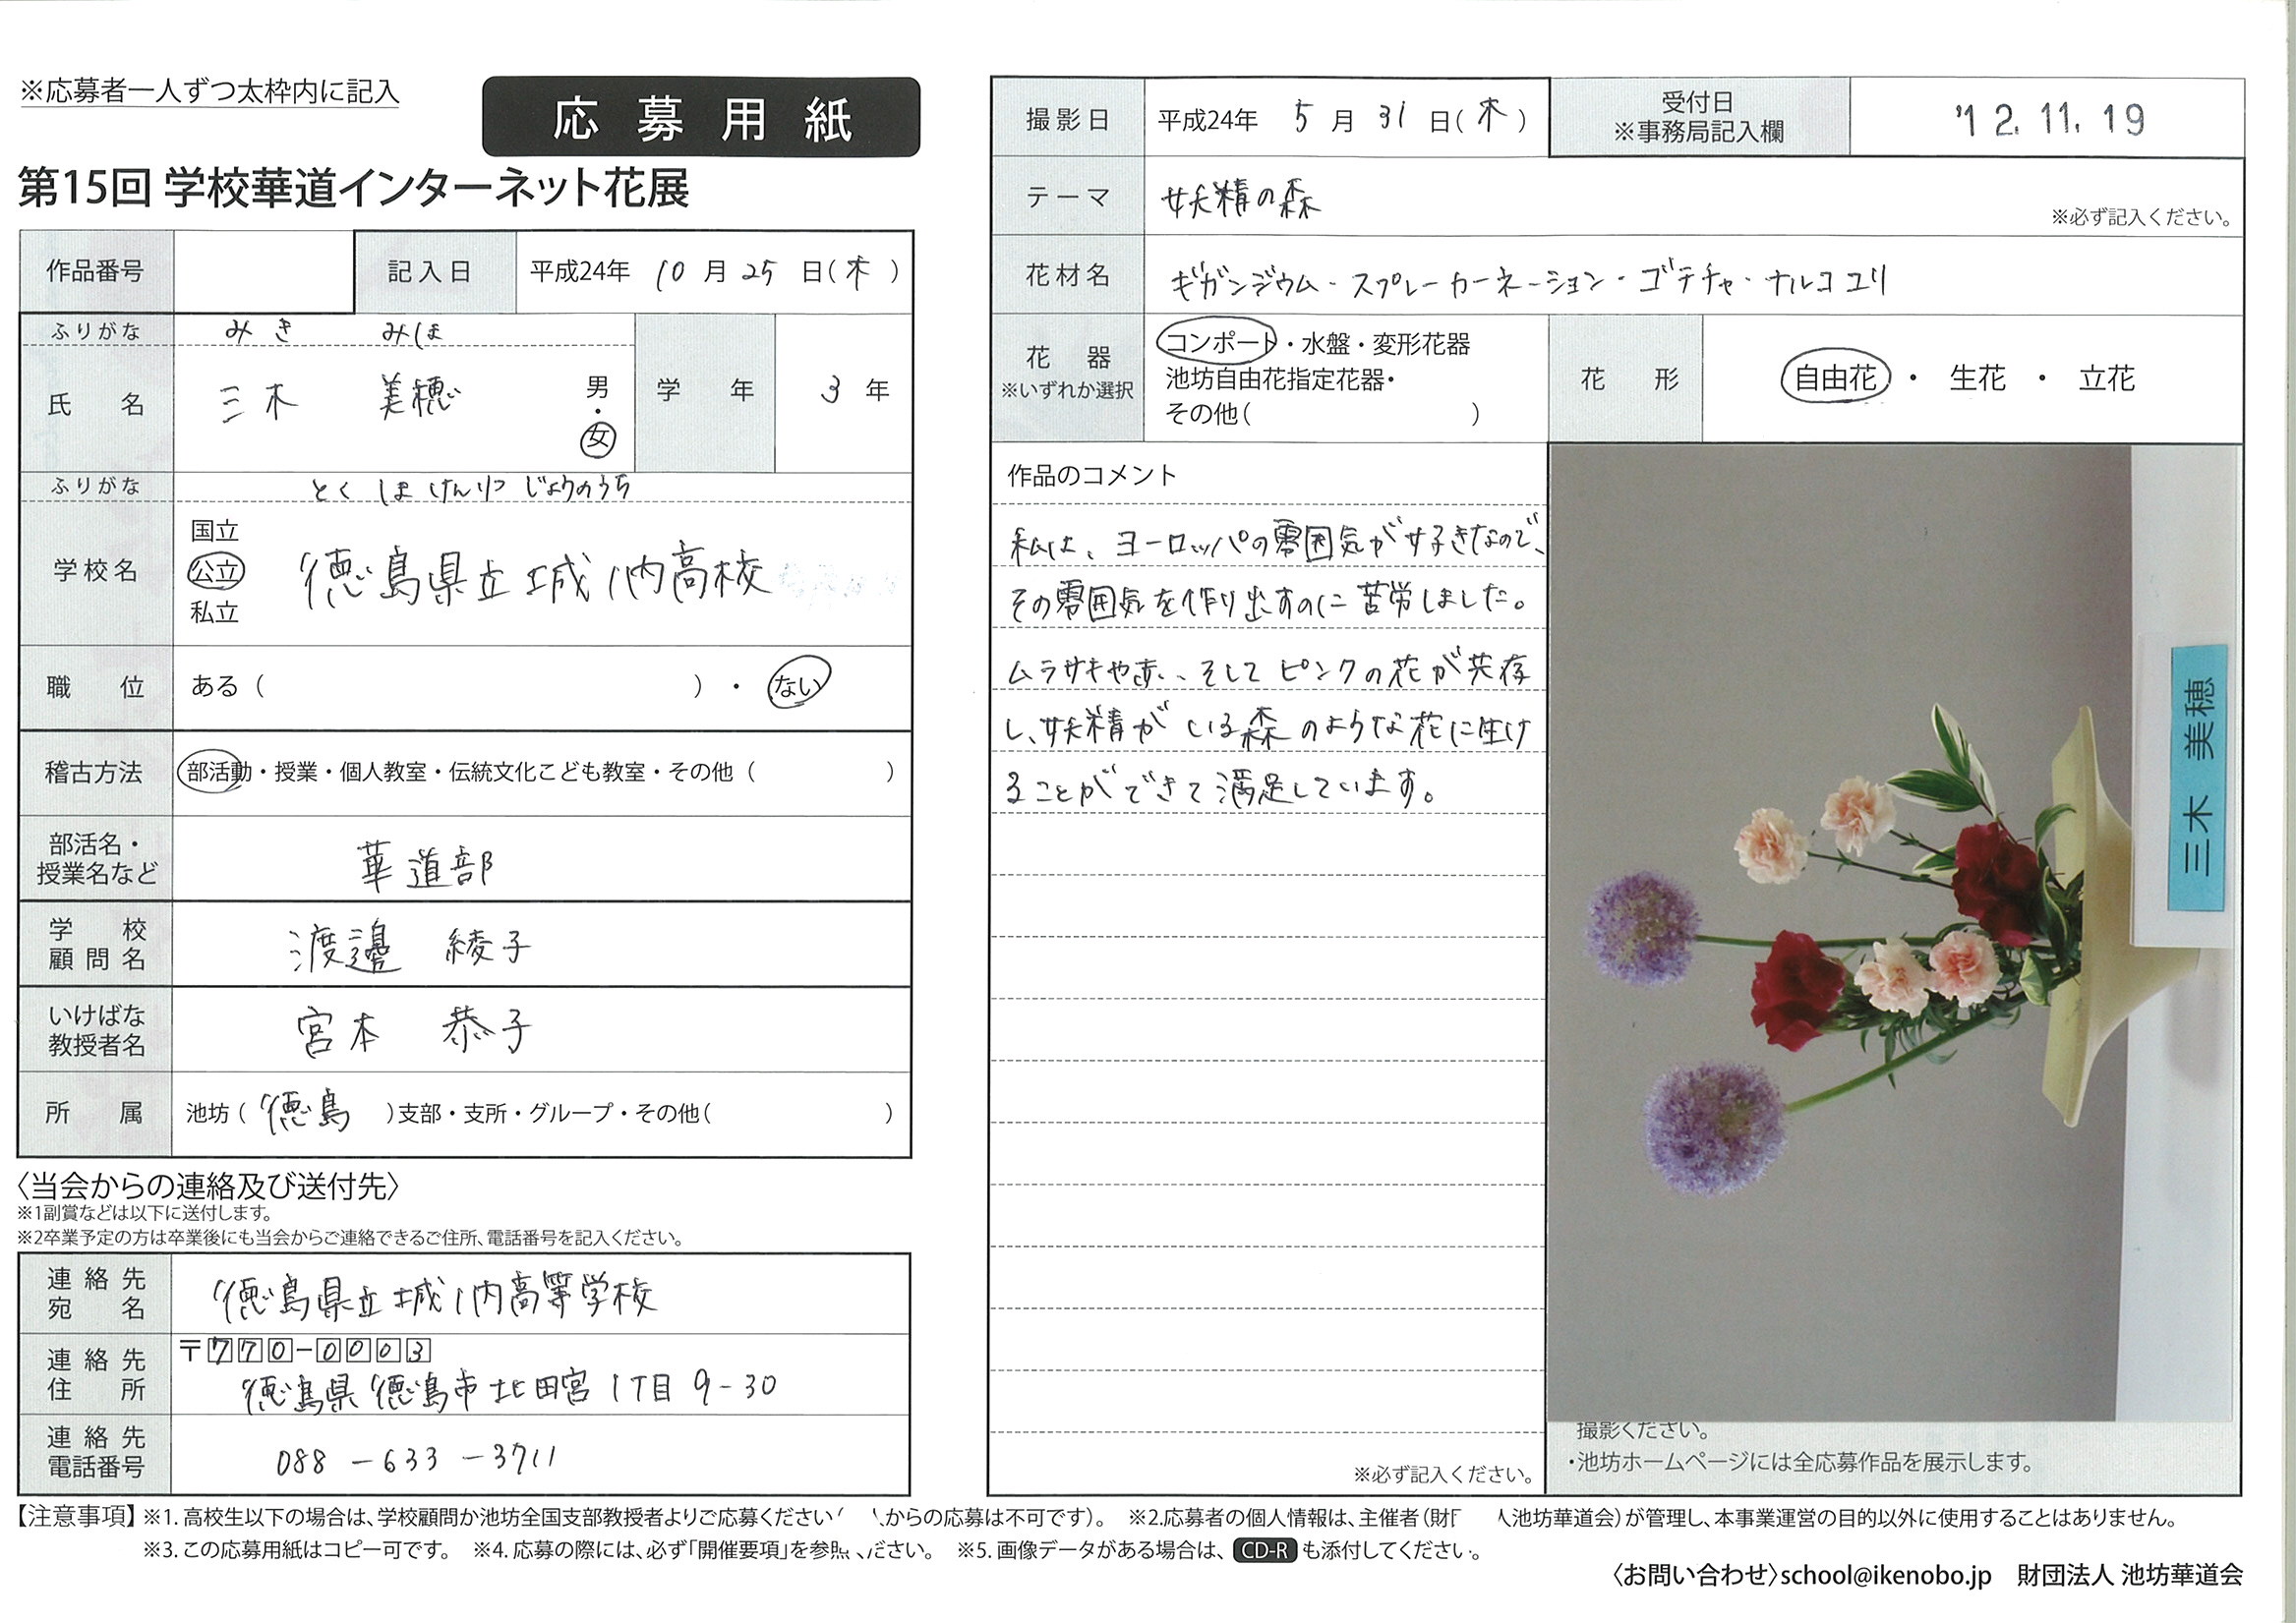 ※応募者一人ずつ太枠内に記入
応募用紙
第15回 学校華道インターネット花展
作品番号
記入日 平成24年 10月25日(木)
ふりがな みき みほ
氏名 三木 美穂 男・女
学年 3年
ふりがな とくしまけんりつ じょうのうち
学校名 国立 公立 私立 徳島県立城ノ内高校
職位 ある( )・ない
稽古方法 部活動・授業・個人教室・伝統文化こども教室・その他( )
部活名・授業名など 華道部
学校顧問名 渡邊 綾子
いけばな教授者名 宮本 恭子
所属 池坊(徳島)支部・支所・グループ・その他( )
〈当会からの連絡及び送付先〉
※1副賞などは以下に送付します。
※2卒業予定の方は卒業後にも当会からご連絡できるご住所、電話番号を記入ください。
連絡先宛名 徳島県立城ノ内高等学校
連絡先住所 〒770-0003
徳島県徳島市北田宮1丁目9-30
連絡先電話番号 088-633-3711
撮影日 平成24年 5月31日(木)
受付日 ※事務局記入欄 '12.11.19
テーマ 妖精の森 ※必ず記入ください。
花材名 ギガンジウム・スプレーカーネーション・ゴテチャ・ナルコユリ
花器 ※いずれか選択
コンポート・水盤・変形花器
池坊自由花指定花器・
その他( )
花形 自由花・生花・立花
作品のコメント
私は、ヨーロッパの雰囲気が好きなので、
その雰囲気を作り出すのに苦労しました。
ムラサキや赤、そしてピンクの花が共存
し、妖精がいる森のような花に生け
ることができて満足しています。
※必ず記入ください。
三木 美穂
撮影ください。
・池坊ホームページには全応募作品を展示します。
【注意事項】※1. 高校生以下の場合は、学校顧問か池坊全国支部教授者よりご応募ください からの応募は不可です)。 ※2.応募者の個人情報は、主催者(財 人池坊華道会)が管理し、本事業運営の目的以外に使用することはありません。
※3. この応募用紙はコピー可です。 ※4. 応募の際には、必ず「開催要項」を参照ください。 ※5. 画像データがある場合は、CD-Rも添付してください。
〈お問い合わせ〉school@ikenobo.jp 財団法人 池坊華道会